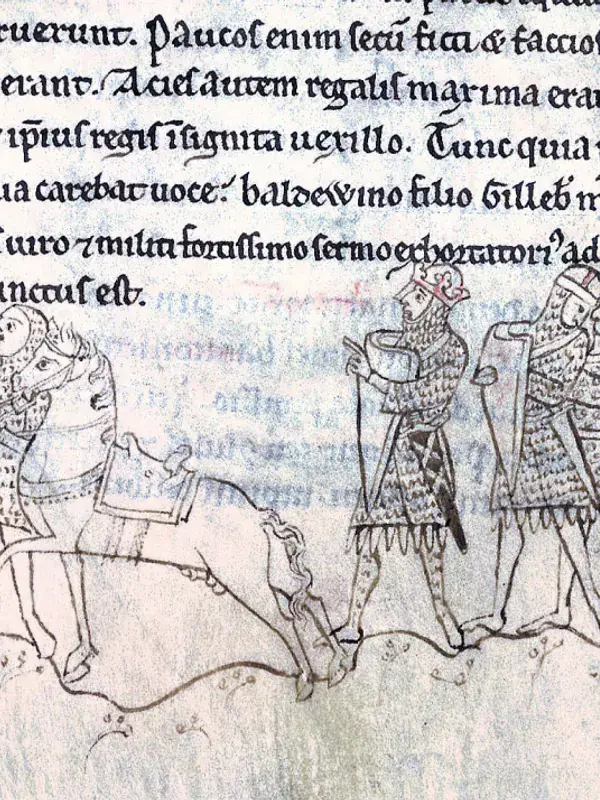 ruerunt. Paucos enim secū ficti & faccios
erant. Acies autem regalis maxima erat
ip̄ius regis īsignita uexillo. Tunc quia
ua carebat uoce: baldewino filio Gilleb̄ m
uiro ⁊ militi fortissimo sermo exhortatoriꝰ ad
unctus est.